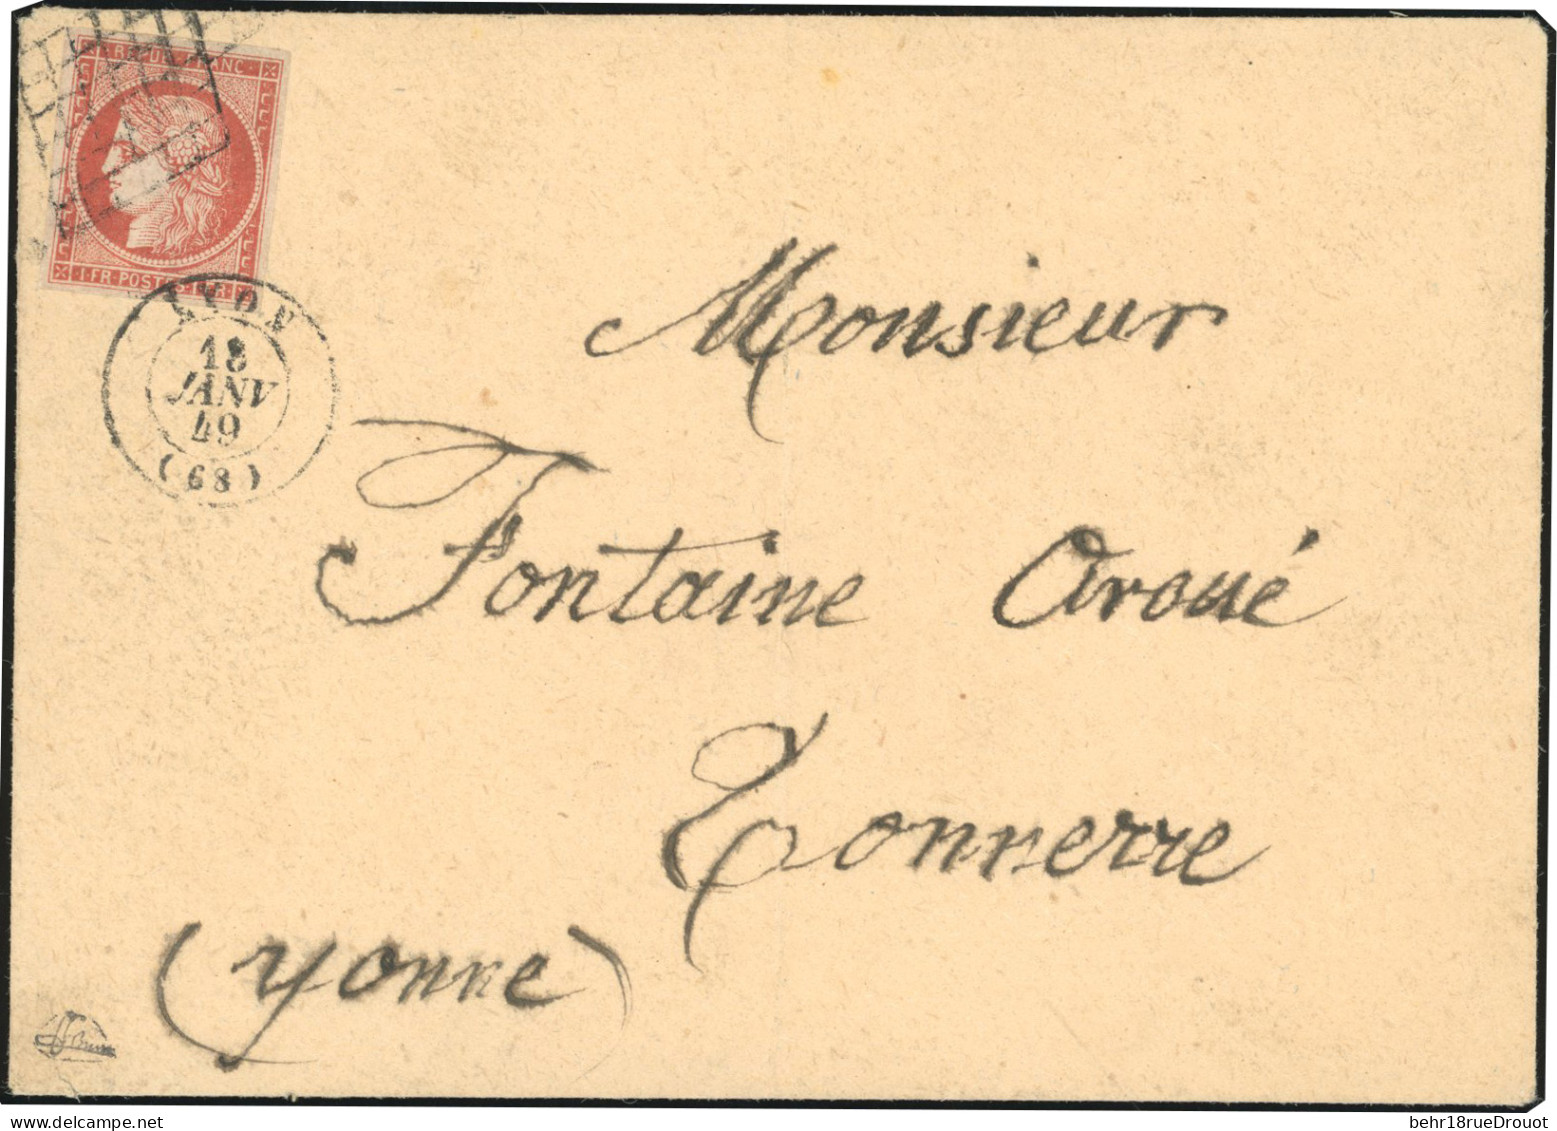 REPUB. FRANC.
1 FR. POSTES 1 FR.
LYON
18
JANV
49
(68)
Monsieur
Fontaine Aroué
Tonnerre
(Yonne)
delcampe.net
behr18rueDrouot